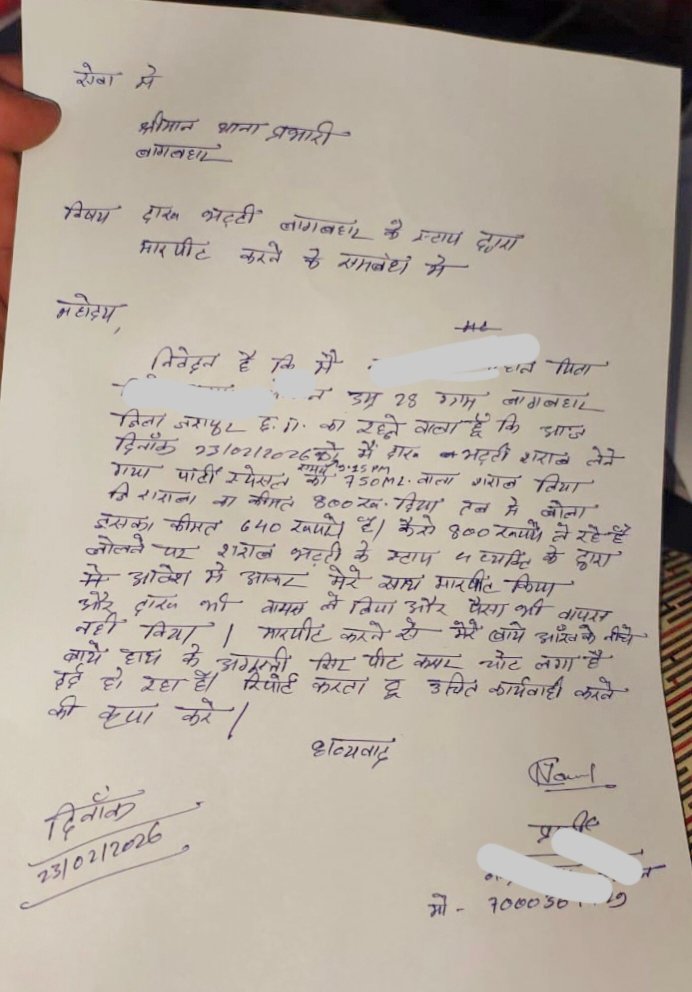 सेवा मे
श्रीमान थाना प्रभारी
बागबहार
विषय दारू भट्टी बागबहार के स्टाप द्वारा
मारपीट करने के सम्बंध मे
महोदय,
निवेदन है कि मै पिता
उम्र 28 ग्राम बागबहार
जिला जशपुर छ.ग. का रहने वाला हूँ कि आज
दिनाँक 23/02/2026 को मै दारू भट्टी शराब लेने
समय 9:25 PM
गया पार्टी स्पेशल का 750ML वाला शराब लिया
शराब का कीमत 800 रू. लिया तब मे बोला
इसका कीमत 640 रूपये है। कैसे 800 रूपये ले रहे है
बोलने पर शराब भट्टी के स्टाप 4 व्यक्ति के द्वारा
मे आवेश मे आकर मेरे साथ मारपीट किया
और दारू भी वापस ले लिया और पैसा भी वापस
नही दिया। मारपीट करने से मेरे बाये आँख के नीचे
बाये हाथ के अंगुली सिर पीट कमर चोट लगा है
दर्द हो रहा है। रिपोर्ट करता हू उचित कार्यवाही करने
की कृपा करे।
धन्यवाद
दिनाँक
23/02/2026
मो - 7000